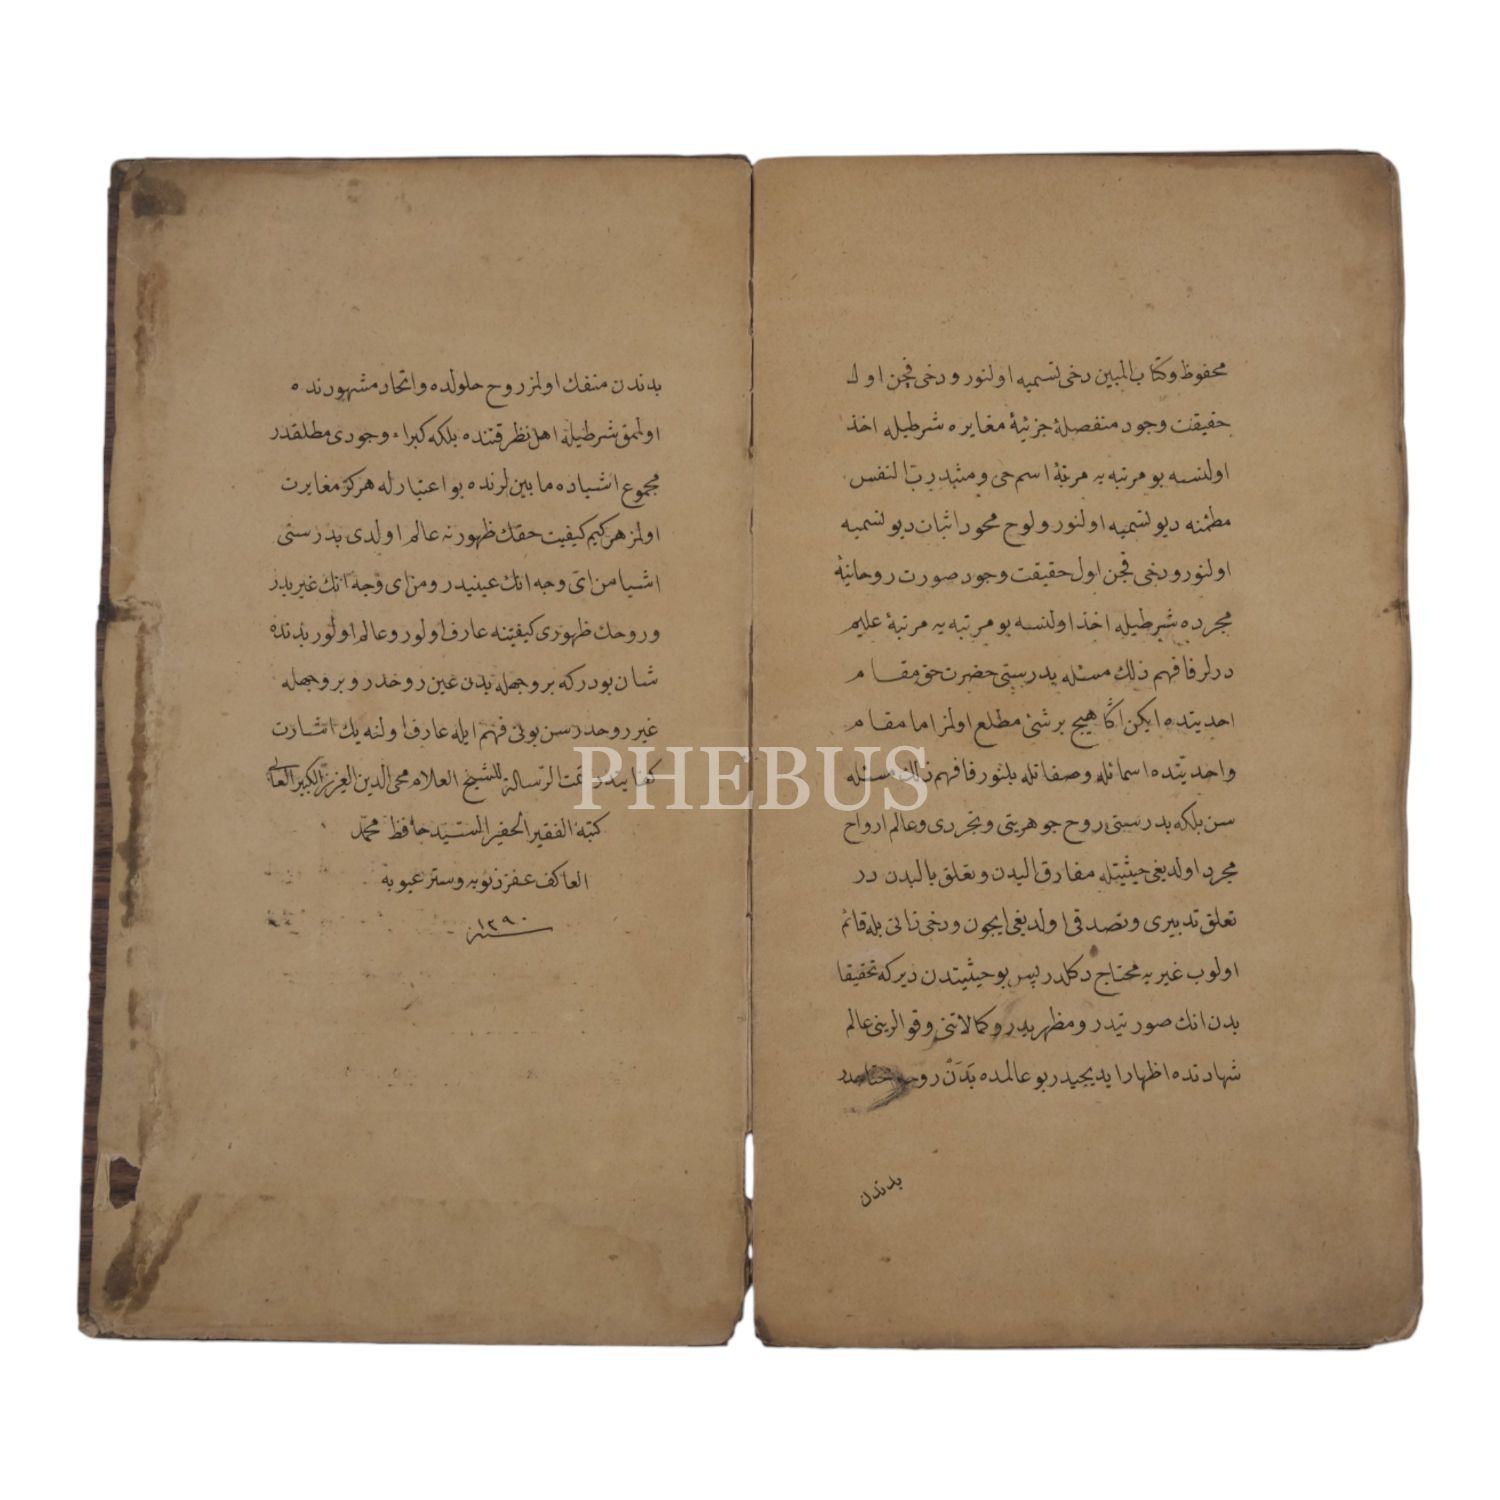 محفوظ و كتاب المبين دخى تسميه اولنور و دخى قچن اول
حقيقت وجود منفصلهٔ جزئيهٔ مغايره شرطيله اخذ
اولنسه بو مرتبه يه مرتبهٔ اسم حى و مثبدر رب النفس
مطمئنه ديو تسميه اولنور و لوح محو د اثبات ديو تسميه
اولنور و دخى قچن اول حقيقت وجود صورت روحانيهٔ
مجرده شرطيله اخذ اولنسه بو مرتبه يه مرتبهٔ عليم
درلر فافهم ذلك مسئله يدرستى حضرت حق مقام
احديتده ايكن اكا هيچ برشئ مطلع اولمز اما مقام
واحديتده اسمائله و صفاتله بلنور فافهم ذلك مسئله
سن بلكه بدرستى روح جوهريتى و تجردى و عالم ارواح
مجرد اولديغى حيثيتله مفارق البدن و تعلق بالبدن در
تعلق تدبيرى و تصدقى اولديغى ايچون و دخى ذاتى بله قائم
اولوب غيريه محتاج دكلدر پس بو حيثيتدن ديركه تحقيقا
بدن انك صورتيدر و مظهريدر و كمالاتنى و قوالرينى عالم
شهادتده اظهار ايديجيدر بو عالمده بَدَنْ روح
بدندن
بدندن منفك اولمز روح حلولده و اتحاد مشهورنده
اولمق شرطيله اهل نظر قتنده بلكه كبراء وجودى مطلقدر
مجموع اشياده مابين لرنده بو اعتبارله هركز مغايرت
اولمز هركيم كيفيت حقك ظهورنه عالم اولدى بدرستى
اشيا من اى وجه انك عينيدر و من اى وجه انك غيريدر
و روحك ظهورى كيفيتنه عارف اولور و عالم اولور بدنده
شان بودركه بر وجهله بدن عين روحدر و بر وجهله
غير روحدر سن بونى فهم ايله عارف اولنه يك اشارت
كفايتدر تمت الرسالة للشيخ العلام محى الدين العزيز الكبير العالى
كتبه الفقير الحقير السيد حافظ محمد
العاكف غفر ذنوبه و ستر عيوبه
سنه ١٢٩٠
PHEBUS